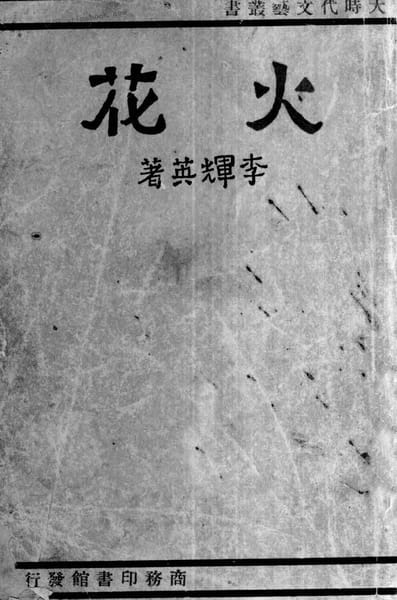 大時代文藝叢書
火花
李輝英著
商務印書館發行